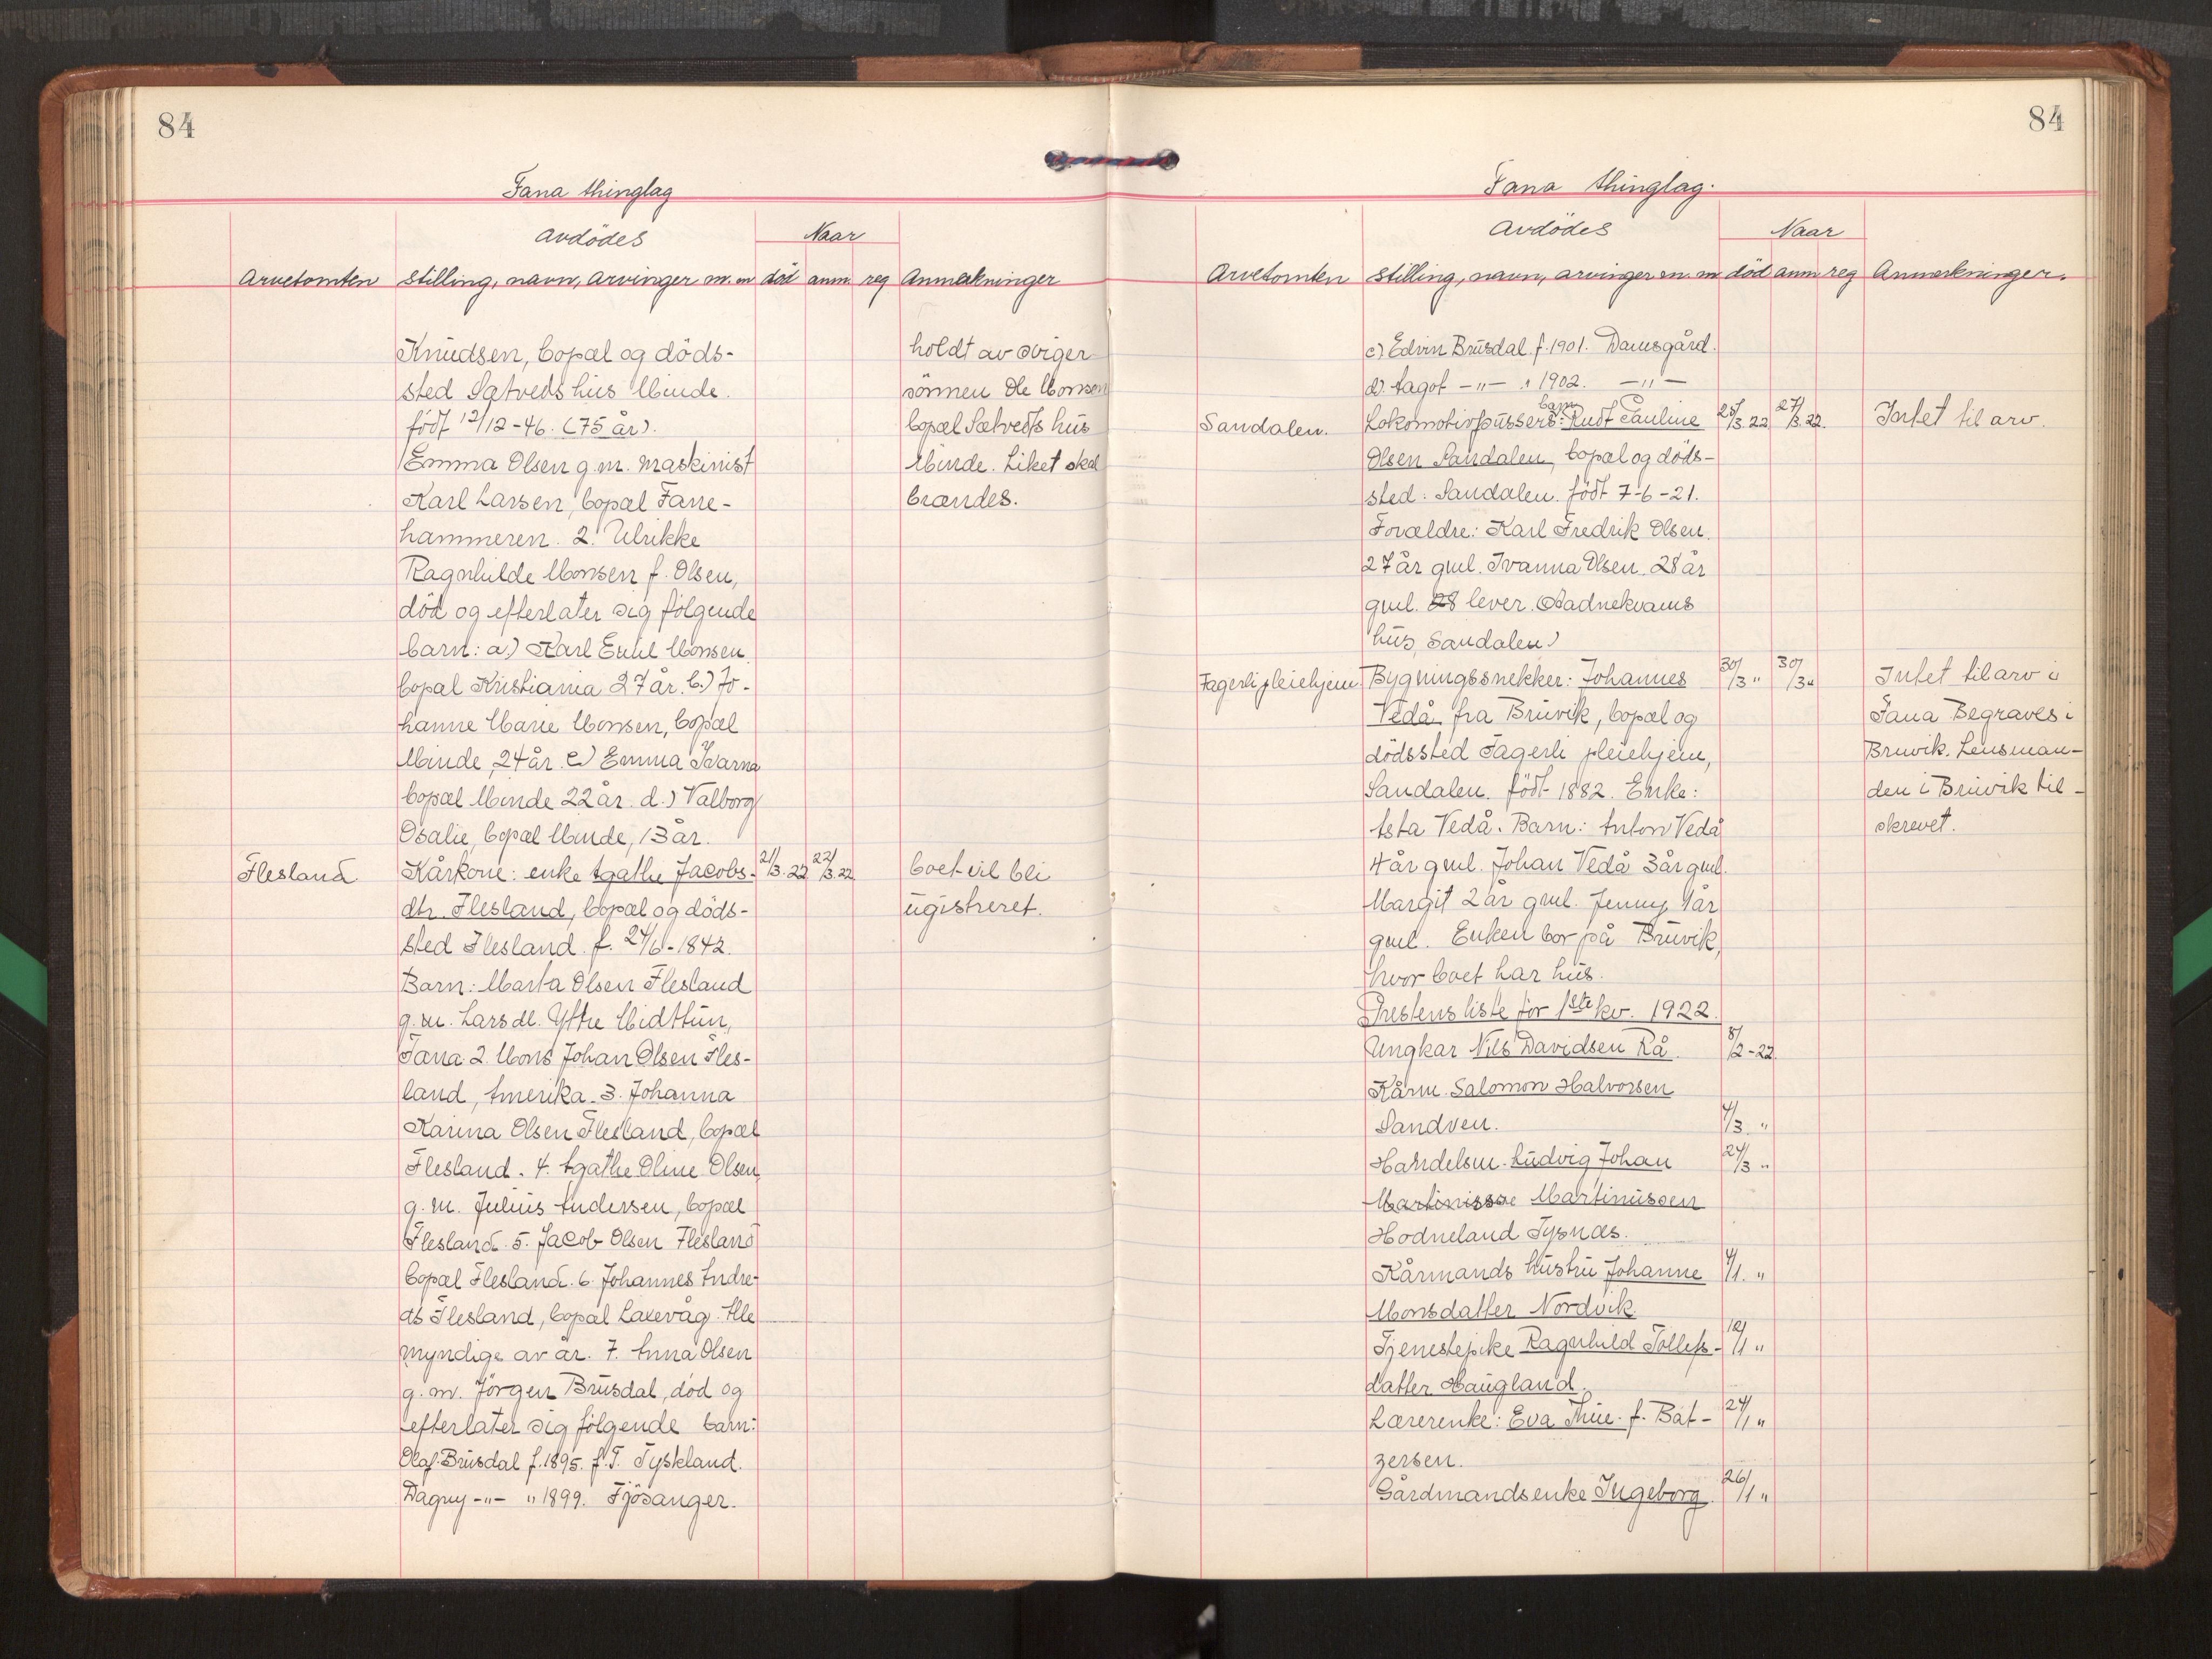 84
Fana thinglag
Avdödes
Naar
Arvetomten stilling, navn, arvinger m.m död anm. reg Anmerkninger
Knudsen, bopæl og döds-
sted Sætveds hus Minde.
född 12/12-46. (75 år).
Emma Olsen g.m. maskinist
Karl Larsen, bopæl Farre-
hammeren. 2. Ulrikke
Ragnhilde Monsen f. Olsen,
död og efterlater sig fölgende
barn: a) Karl Emil Monsen
bopæl Kristiania 27 år. b.) Jo-
hanne Marie Monsen, bopæl
Minde, 24 år. c) Emma Ivarna
bopæl Minde 22 år. d.) Valborg
Osalie, bopæl Minde, 13 år.
holdt av sviger
sönnen Ole Monsen
bopæl Sætvedts hus
Minde. Liket skal
brændes.
Flesland. Kårkone: enke Agathe Jacobs- 21/3.22 22/3.22 boet vil bli
dtr. Flesland, bopæl og döds- ugistreret.
sted Flesland f. 24/6-1842.
Barn: Marta Olsen Flesland
g.m. Lars dl. Yttre Midttun,
Fana. 2. Mons Johan Olsen Fles-
land, Amerika. 3. Johanna
Karina Olsen Flesland, bopæl
Flesland. 4. Agathe Oline Olsen
g.m. Julius Andersen, bopæl
Flesland. 5. Jacob Olsen Flesland
bopæl Flesland. 6. Johannes Andre-
as Flesland, bopæl Laxevåg. Alle
myndige av år. 7. Anna Olsen
g.m. Jörgen Brusdal, död og
efterlater sig fölgende barn:
Olaf Brusdal f. 1895. f.T. Tyskland.
Dagny -"- " 1899. Fjösanger.
84
Fana thinglag.
Avdödes
Naar
Arvetomten stilling, navn, arvinger m.m död anm reg Anmerkninger.
c) Edvin Brusdal f. 1901. Damsgård.
d) Aagot -"- " 1902. -"-
barn
Sandalen. Lokomotivpussers: Rudt Pauline 25/3.22 27/3.22. Intet til arv.
Olsen Sandalen, bopæl og döds-
sted: Sandalen. född 7-6-21.
Forældre: Karl Fredrik Olsen.
27 år gml. Ivanna Olsen. 28 år
gml. 28 lever. (Aadnekvams
hus, Sandalen)
Fagerli pleiehjem. Bygningssnekker: Johannes 30/3 " 30/3 " Intet til arv i
Vedå fra Bruvik, bopæl og Fana Begraves i
dödssted Fagerli pleiehjem, Bruvik. Lensman-
Sandalen. född 1882. Enke: den i Bruvik til-
Asta Vedå. Barn: Anton Vedå skrevet.
4 år gml. Johan Vedå 3 år gml.
Margit 2 år gml. Jenny 1 år
gml. Enken bor på Bruvik,
hvor boet har hus.
Prestens liste for 1ste kv. 1922.
Ungkar Nils Davidsen Rå. 8/2-22.
Kårm. Salomon Halvorsen
Sandven. 4/3. "
Handelsm. Ludvig Johan 24/3 "
Martinisse Martinussen
Hodneland Tysnæs.
Kårmands hustru Johanne 4/1. "
Monsdatter Nordvik
Tjenestepike Ragnhild Tollefs- 12/1 "
datter Haugland.
Lærerenke: Eva Thue. f. Bat- 24/1 "
zersen.
Gårdmandsenke Ingeborg 26/1 "